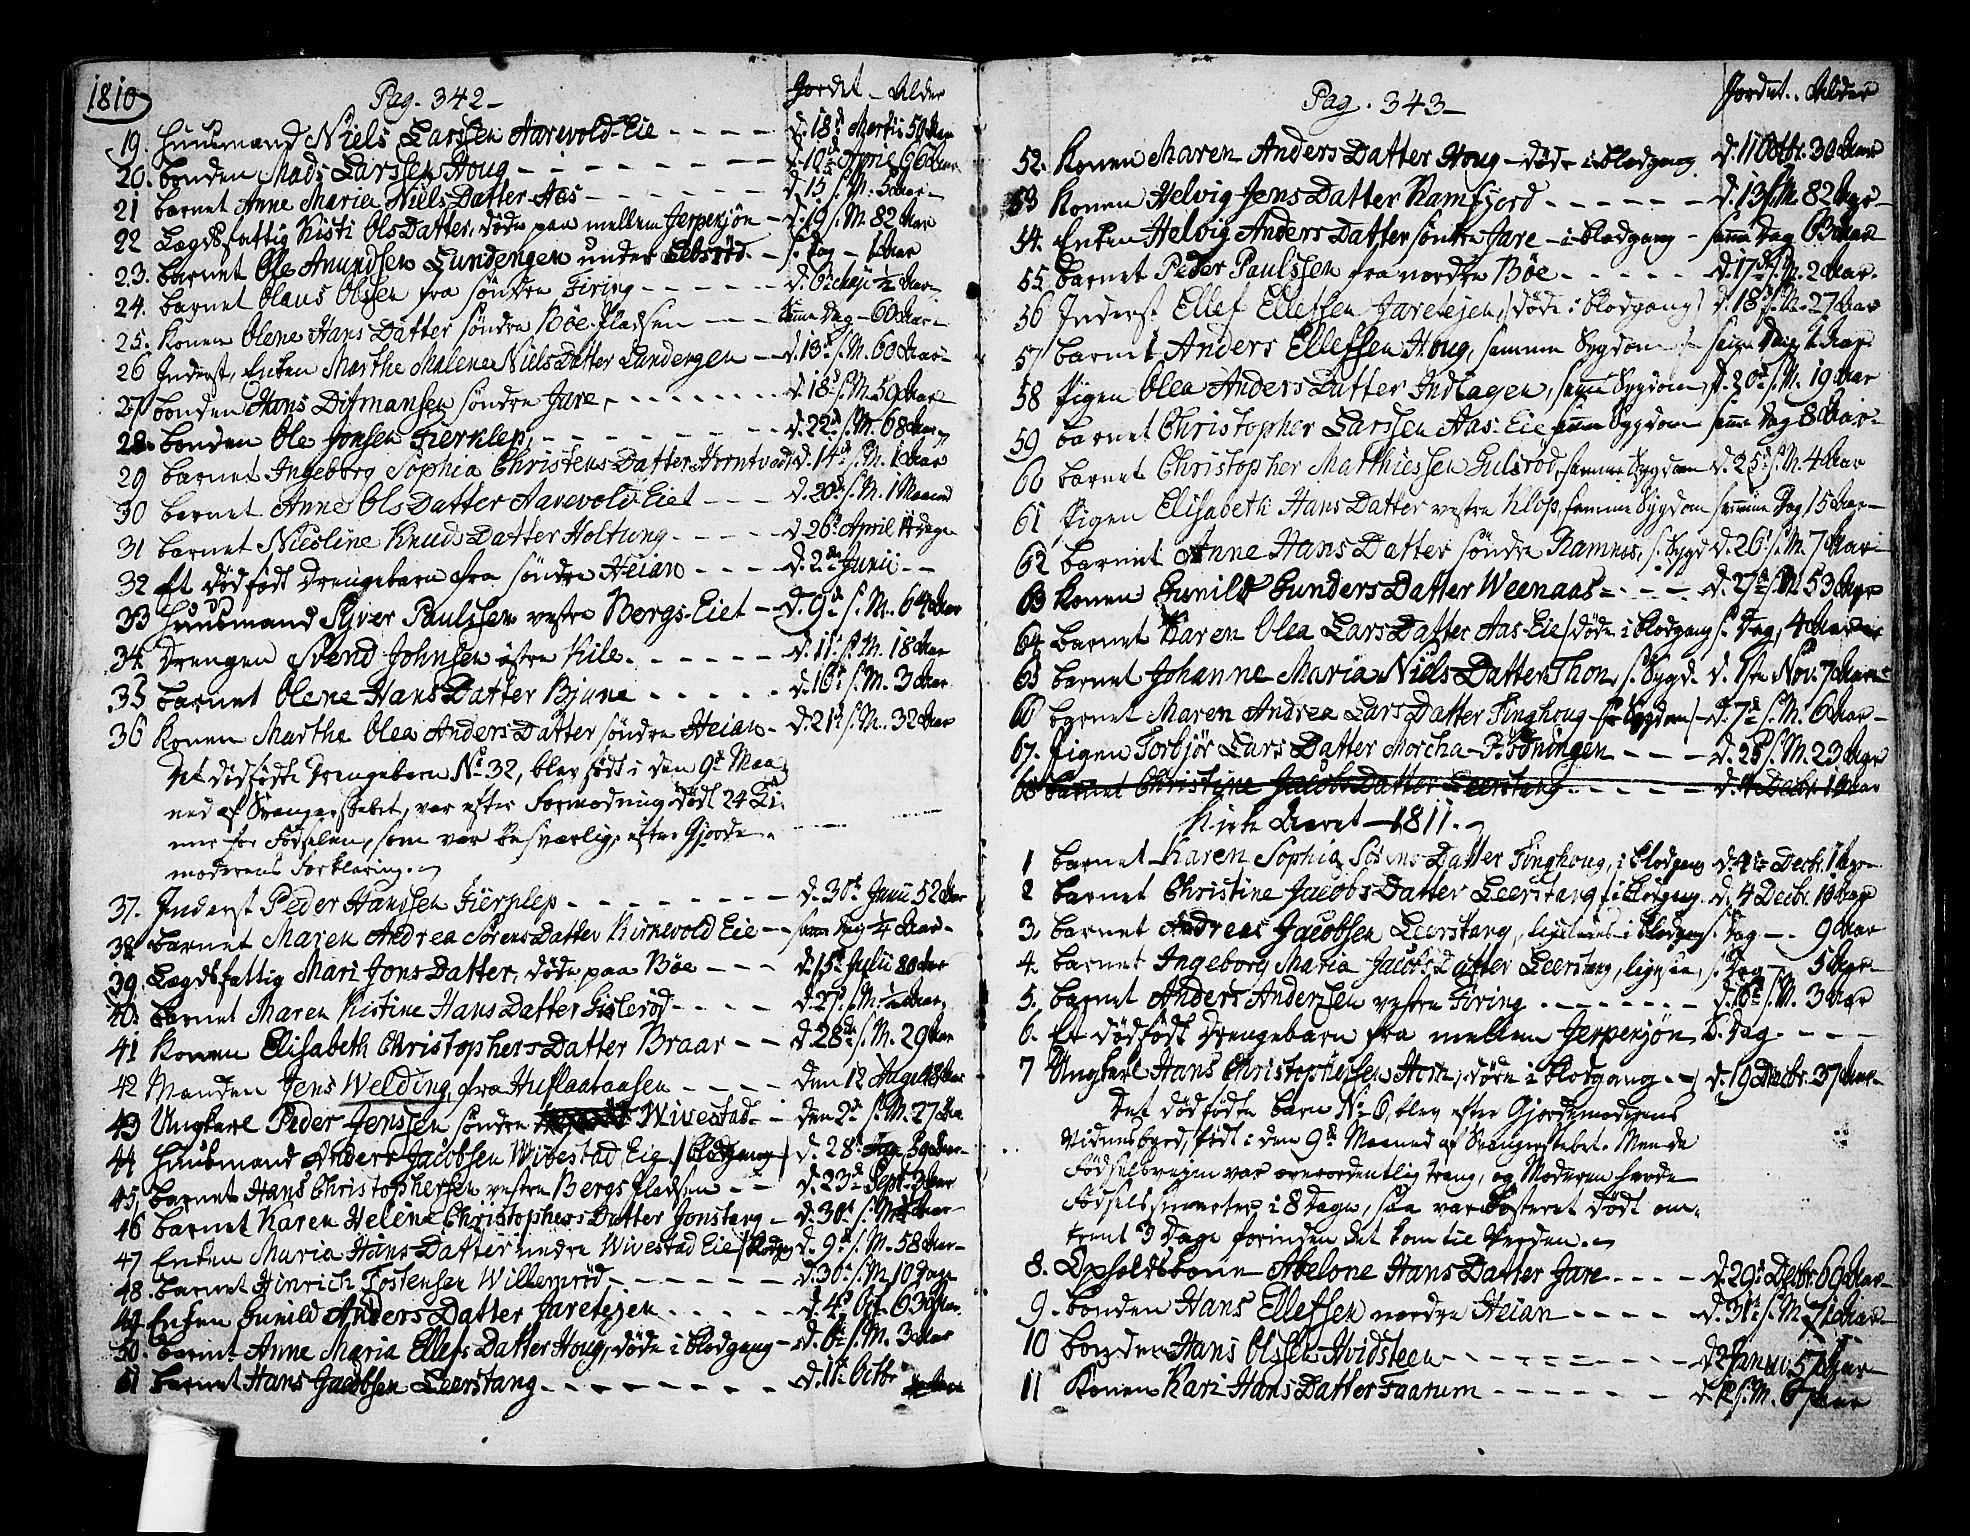 1810
Pag. 342
Jordet - Alder
19. Huusmand Niels Larssen Aarevold-Eie - d. 18d Martii 50 Aar
20. Bonden Mads Larssen Houg - d. 10d April 66 Aar
21 Barnet Anne Maria NielsDatter Aas - d. 15 s. M. 3 Aar
22 Lægdsfattig Kisti OlsDatter, døde paa mellem Jerpekjøn - d. 19 s. M. 82 Aar
23. Barnet Ole Amundsen Lundengen under - s. Dag - 1 Aar
24. Barnet Olaus Olssen fra søndre Firing - d. 6te Maji ½ Aar
25. Konen Olene Hans Datter søndre Bøe-Pladsen - samme Dag - 60 Aar
26 Inderst, Enken Marthe Malene NielsDatter Lundengen - d. 13d s. M. 60 Aar
27 Bonden Hans Ditmansen søndre Jare, - d. 18d s. M. 59 Aar
28. Bonden Ole Jonsen Fierklep, - d. 22d s. M. 68 Aar
29 Barnet Ingeborg Sophia ChristensDatter - d. 14d s. M. 1 Aar
30 Barnet Anne OlsDatter Aarevold-Eiet - d. 20d s. M. 1 Maaned
31 Barnet Nicoline KnudsDatter Holtung - d. 26d April Dage
32 Et dødfødt Drengebarn fra søndre Heian - d. 2den Junii
33 Huusmand Syver Paulssen vestre Bergs-Eiet - d. 9d s. M. 64 Aar
34. Drengen Svend Johnsen østre Kile - d. 11te s. M. 18 Aar
35 Barnet Olene HansDatter Bjune - d. 16d s. M. 3 Aar
36 Konen Marthe Olea AndersDatter søndre Heian - d. 21d s. M. 32 Aar
Det dødfødte Drengebarn No 32, blev født i den 9d Maa
ned af Svangerskabet, var efter Formodning død 24 Ti
mer for Fødselen, som var besværlig, efter Gjorde
moderens Forklaring.
37. Inderst Peder Hanssen Fierklep - d. 30d Junii 52 Aar
38 Barnet Maren Andrea SørensDatter Kirkevold Eie - samme Dag ¼ Aar
39. Lægdsfattig Mari JonsDatter, døde paa Bøe - d. 15d Julii 80 Aar
40. Barnet Maren Kistine HansDatter Gislerød - d. 27d s. M. Aar
41 Konen Elisabeth ChristophersDatter Braar - d 28de s. M. 29 Aar
42 Manden Jens Welding, fra Huflaataasen - den 12 Aug 48 Aar
43 Ungkarl Peder Jenssen søndre Wivestad - den 2d s. M. 27 Aar
44 Huusmand Anders Jacobsen Wivestad, Eie / Blodgang / d. 28d Aar
45, Barnet Hans Christophersen vestre Bergs Pladsen - d. 23d Sept. 3 Aar
46 Barnet Karen Helene ChristophersDatter Jonstang - d. 30d s. M. Aar
47 Enken Maria HansDatter indre Wivestad Eie - d. 9d s. M. 58 Aar
48. Barnet Hinrich Tostensen Willemrød - d. 30d s. M. 10 Dage
49 Enken Gunild AndersDatter Jaretejen - d. 4d Oct. 63 Aar
50. Barnet Anne Maria EllefsDatter Houg, døde i Blodgang - d. 6te s. M. 3 Aar
51 Barnet Hans Jacobsen Leerstang - d. 11te Octbr.
Pag. 343
Jordet. Alder
52. Konen Maren AndersDatter Houg - døde i Blodgang d. 11 Octbr. 30 Aar
53 Konen Helvig JensDatter Ramfjord - d. 13 s. M. 82 Aar
54. Enken Helvig AndersDatter søndre Jare - i Blodgang - samme Dag 63 Aar
55. Barnet Peder Paulssen fra nordre Bøe - d. 17de s. M. 2 Aar
56 Inderst Ellef Ellefsen Jaretejen, (døde i Blodgang) d. 18d s. M. 27 Aar
57 Barnet Anders Ellefsen Houg, samme Sygdom - samme Dag 1 Aar
58 Pigen Olea AndersDatter Indlagen, samme Sygdom, d. 20d s. M. 19 Aar
59 Barnet Christopher Larssen Aas-Eie samme Sygdom samme Dag 8 Aar
60 Barnet Christopher Matthiessen Gulsrod, samme Sygdom d. 25d s. M. 4 Aar
61 Pigen Elisabeth HansDatter vestre Klop, samme Sygdom samme Dag 15 Aar
62 Barnet Anne HansDatter søndre Ramnes, s. Sygd d. 26d s. M. 7 Aar
63 Konen Gunild GundersDatter Weenaas - d. 27de s. M. 53 Aar
64 Barnet Karen Olea LarsDatter Aas-Eie / døde i Blodgang s. Dag, 4 Aar
65 Barnet Johanne Maria NielsDatter Thon, s. Sygd. d. 1ste Nov. 7 Aar
66 Barnet Maren Andrea LarsDatter Tinghoug - d. 7d s. M. 6 Aar
67. Pigen Torbjør LarsDatter Morcha-Rødningen - d. 28d s. M. 23 Aar
68 Barnet Christine JacobsDatter Leerstang - d. 4 Decbr. 10 Aar
Kirke Aaret 1811.
1 Barnet Karen Sophia SørensDatter Tinghoug, i Blodgang d. 4de Decbr. 1 Aar
2 Barnet Christine JacobsDatter Leerstang i Blodgang. d. 4 Decbr. 10 Aar
3. Barnet Andreas Jacobsen Leerstang, ligeledes i Blodgang s. Dag - 9 Aar
4. Barnet Ingeborg Maria JacobsDatter Leerstang, ligesaa, s. Dag - 5 Aar
5. Barnet Anders Andersen vestre Firing - d. 16d s. M. 3 Aar
6. Et dødfødt Drengebarn fra mellem Jerpekjøn s. Dag
7 Ungkarl Hans Christophersen Horn, døde i Blodgang - d. 19 Decbr. 37 Aar
Det dødfødte Barn No 6, blev efter Gjordemoderens
Vidnesbyrd, født i den 9d Maaned af Svangerskabet. Men da
Fødselsveien var overordentlig trang, og Moderen havde
Fødselssmerter i 8 Dage, saa var Fosteret dødt om-
trent 3 Dage forinden det kom til Verden.
8. Opholdskone Abelone HansDatter Jare - d. 29d Decbr. 69 Aar
9. Bonden Hans Ellefsen nordre Heian - d. 31te s. M. 71 Aar
10 Bonden Hans Olssen Hvidsteen - d 2 Januar. 57 Aar
11 Konen Kari HansDatter Faarum - d. 12 s. M. 67 Aar